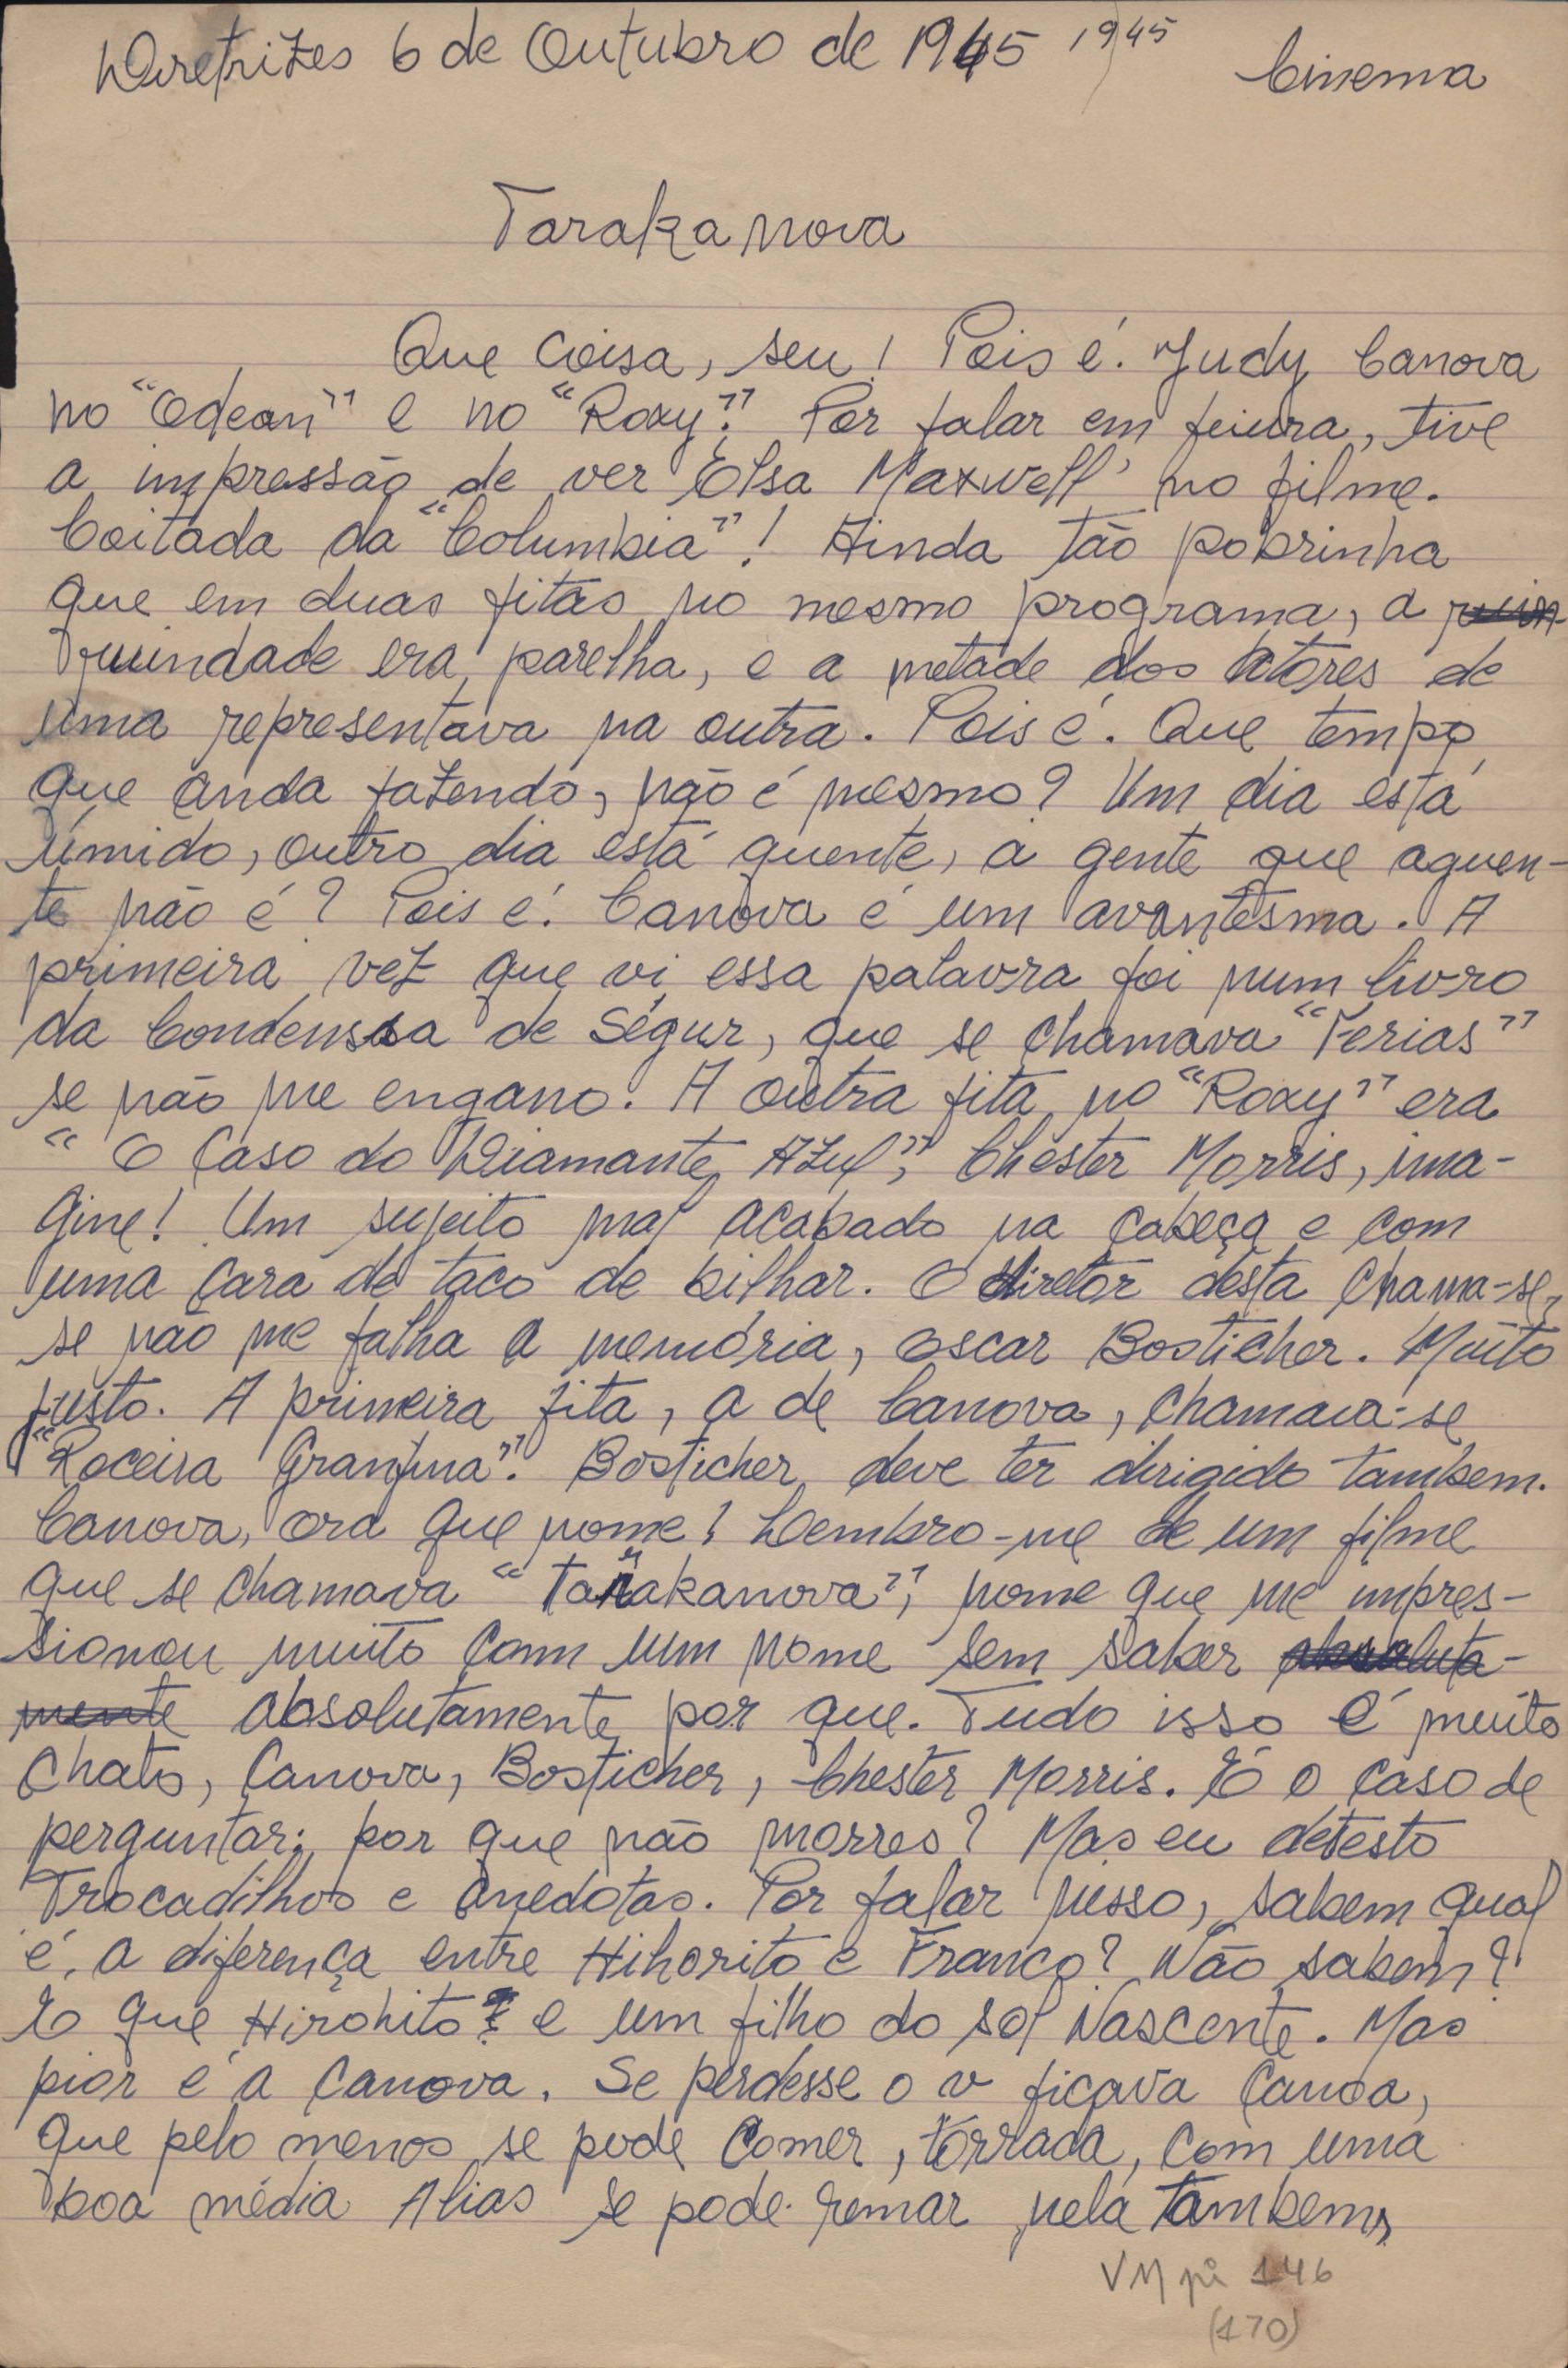 Diretrizes 6 de Outubro de 1945 1945 Cinema
Tarakanova
Que coisa, seu! Pois é. Judy Canova
no "Odeon" e no "Roxy". Por falar em feiura, tive
a impressão de ver Elsa Maxwell no filme.
Coitada da "Columbia"! Ainda tão pobrinha
que em duas fitas no mesmo programa, a ruin-
ruindade era parelha, e a metade dos atores de
uma representava na outra. Pois é. Que tempo
que anda fazendo, não é mesmo? Um dia está
úmido, outro dia está quente, a gente que aguen-
te não é? Pois é. Canova é um avantesma. A
primeira vez que vi essa palavra foi num livro
da Condenssa de Ségur, que se chamava "Ferias"
se não me engano. A outra fita no "Roxy" era
"O Caso do Diamante Azul", Chester Morris, ima-
gine! Um sujeito mal acabado na cabeça e com
uma cara de taco de bilhar. O diretor desta chama-se,
se não me falha a memória, Oscar Bosticher. Muito
justo. A primeira fita, a de Canova, chamava-se
"Roceira Granfina". Bosticher deve ter dirigido tambem.
Canova, ora que nome! Lembro-me de um filme
que se chamava "Tarakanova", nome que me impres-
sionou muito com um nome sem saber absoluta-
mente absolutamente por que. Tudo isso é muito
chato, Canova, Bosticher, Chester Morris. É o caso de
perguntar: por que não morres? Mas eu detesto
trocadilhos e anedotas. Por falar nisso, sabem qual
é a diferença entre Hihorito e Franco? Não sabem?
É que Hirohito é um filho do sol Nascente. Mas
pior é a Canova. Se perdesse o v ficava Canoa,
que pelo menos se pode comer, torrada, com uma
boa média Alias se pode remar nela tambem,
VM pi 146
(170)